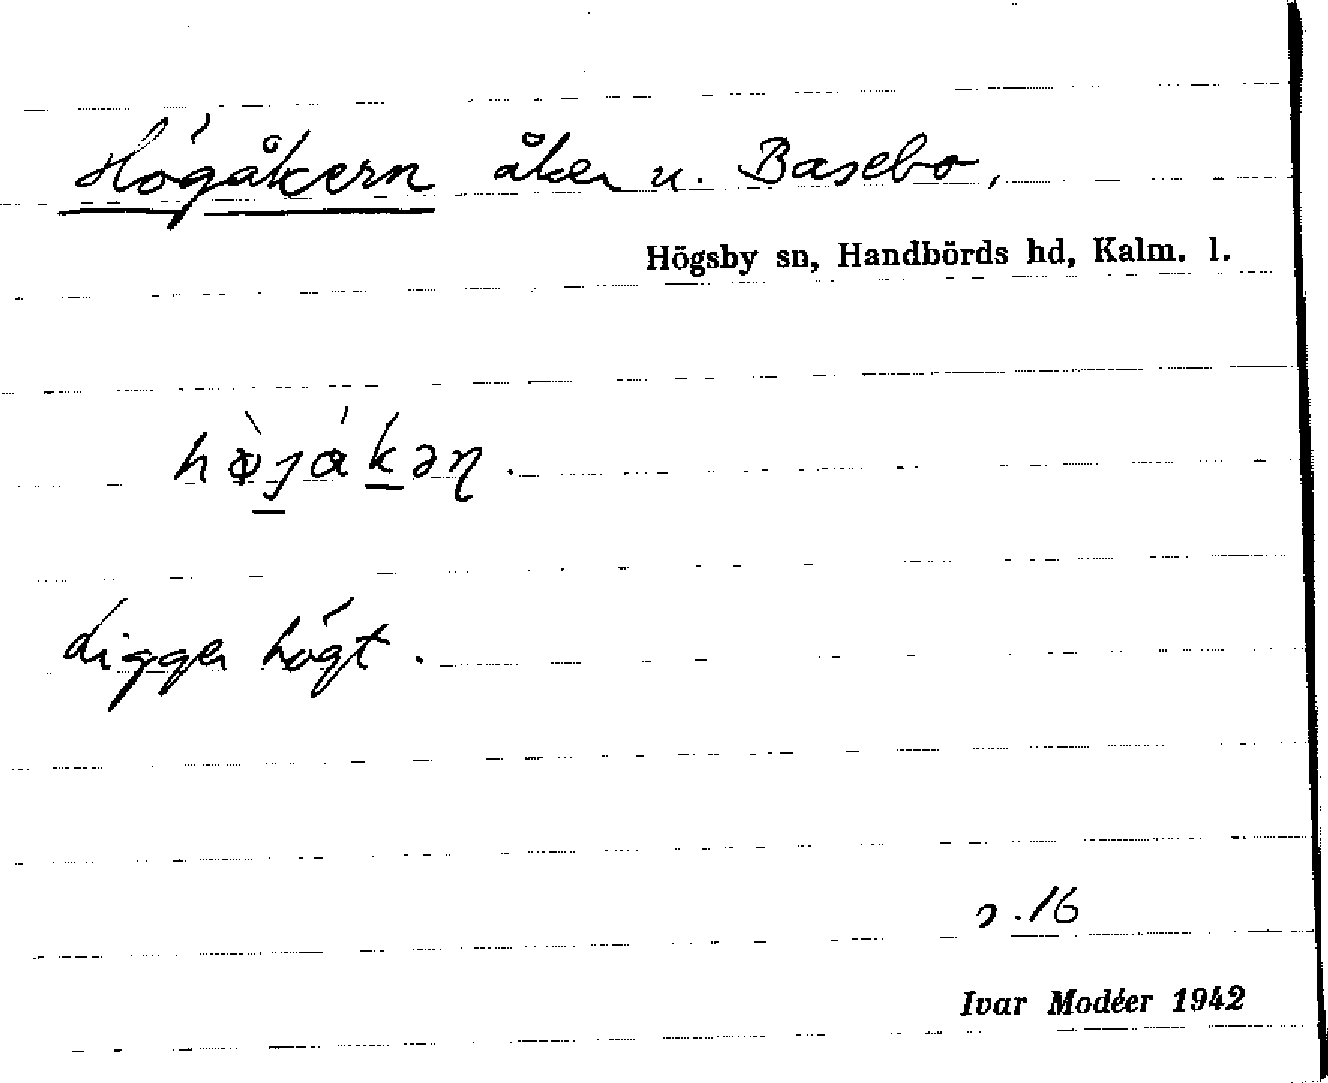 Högåkern åker u. Basebo,
Högsby sn, Handbörds hd, Kalm. l.
Ligger högt.
Ivar Modéer 1942